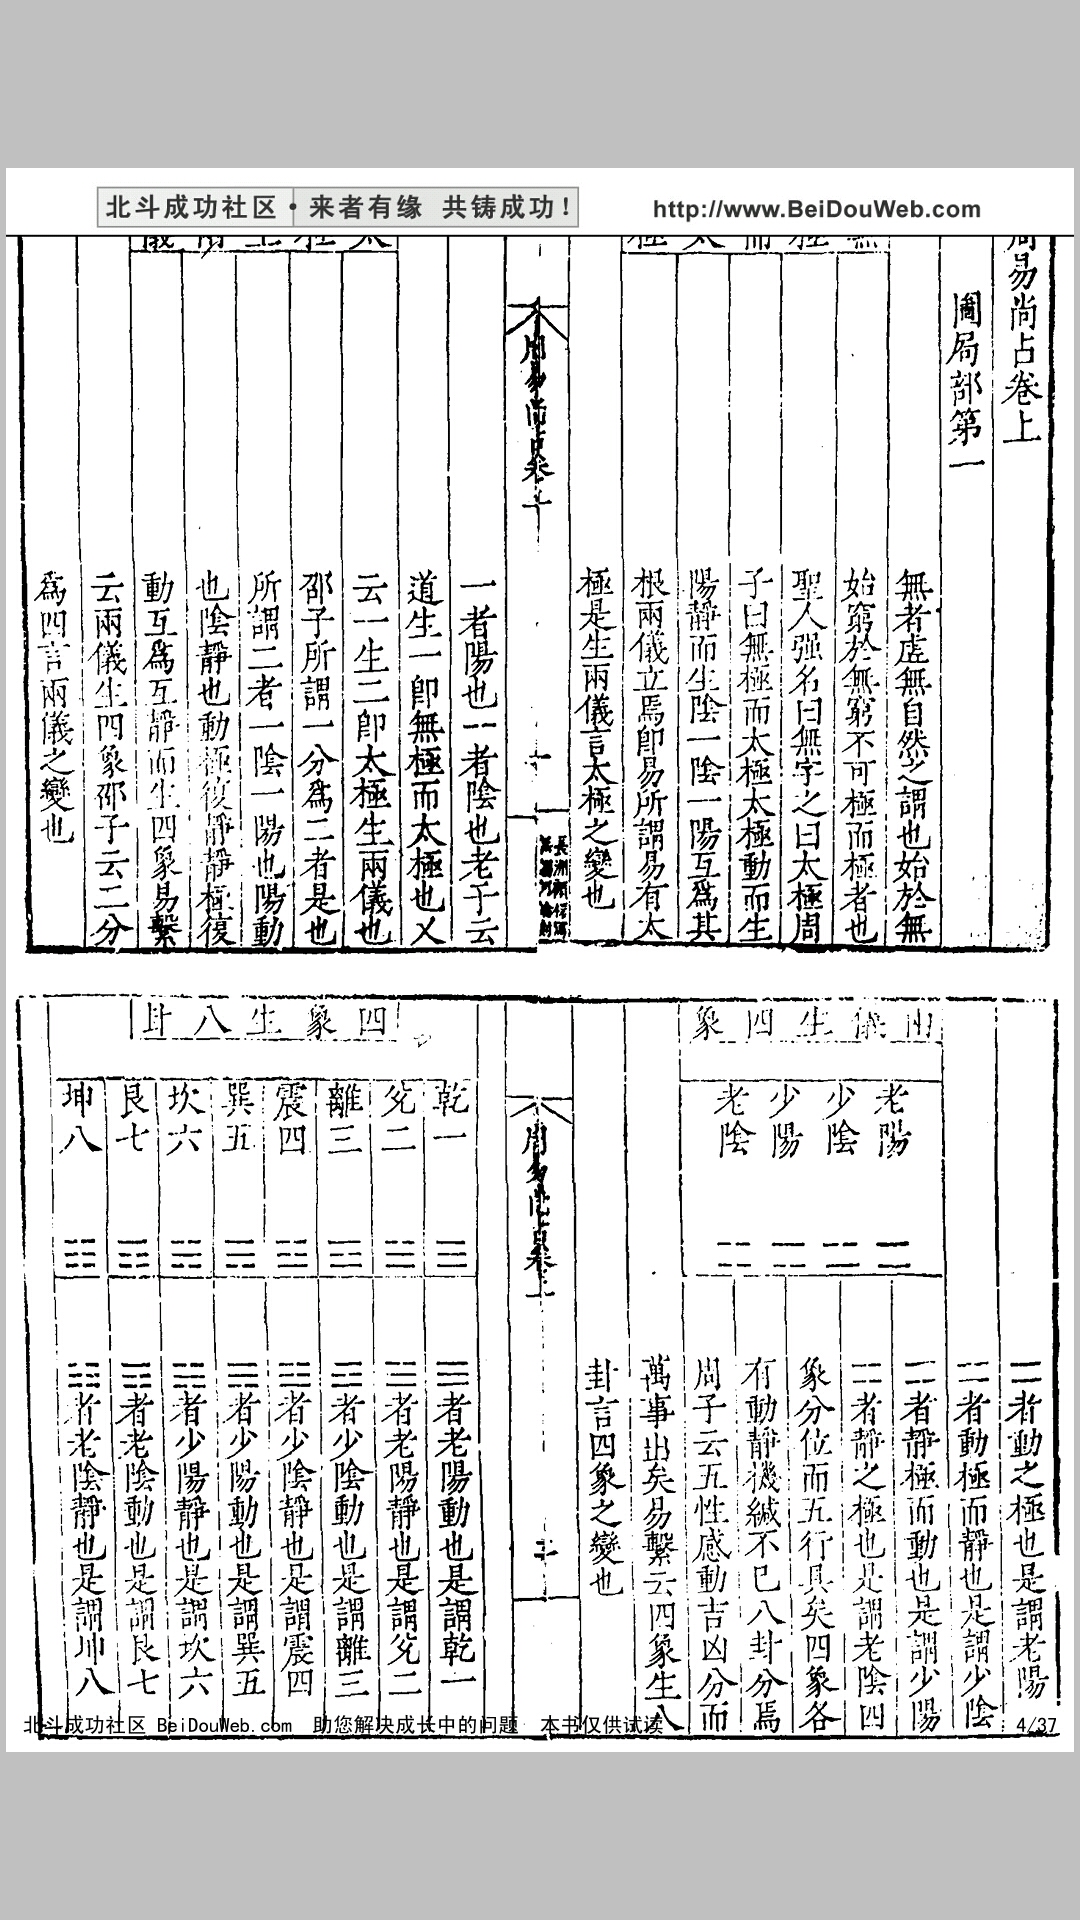 北斗成功社区·来者有缘 共铸成功!
http://www.BeiDouWeb.com
周易尚占卷上
圖局部第一
無極而太極
無者虛無自然之謂也始於無
始窮於無窮不可極而極者也
聖人强名曰無字之曰太極周
子曰無極而太極太極動而生
陽靜而生陰一陰一陽互爲其
根兩儀立焉卽易所謂易有太
極是生兩儀言太極之變也
周易尚占卷上
一
太極生兩儀
⚊者陽也⚋者陰也老子云
道生一卽無極而太極也乂
云一生二卽太極生兩儀也
邵子所謂一分爲二者是也
所謂二者一陰一陽也陽動
也陰靜也動極復靜靜極復
動互爲互靜而生四象易繫
云兩儀生四象邵子云二分
爲四言兩儀之變也
兩儀生四象
老陽 ⚌
少陰
少陽
老陰 ⚏
⚌者動之極也是謂老陽
者動極而靜也是謂少陰
者靜極而動也是謂少陽
⚏者靜之極也是謂老陰四
象分位而五行具矣四象各
有動靜機緘不已八卦分焉
周子云五性感動吉凶分而
萬事出矣易繫云四象生八
卦言四象之變也
周易尚占卷上
二
四象生八卦
乾一 ☰
兊二 ☱
離三 ☲
震四 ☳
巽五 ☴
坎六 ☵
艮七 ☶
坤八 ☷
☰者老陽動也是謂乾一
☱者老陽靜也是謂兊二
☲者少陰動也是謂離三
☳者少陰靜也是謂震四
☴者少陽動也是謂巽五
☵者少陽靜也是謂坎六
☶者老陰動也是謂艮七
☷者老陰靜也是謂坤八
北斗成功社区 BeiDouWeb.com 助您解决成长中的问题 本书仅供试读
4/37